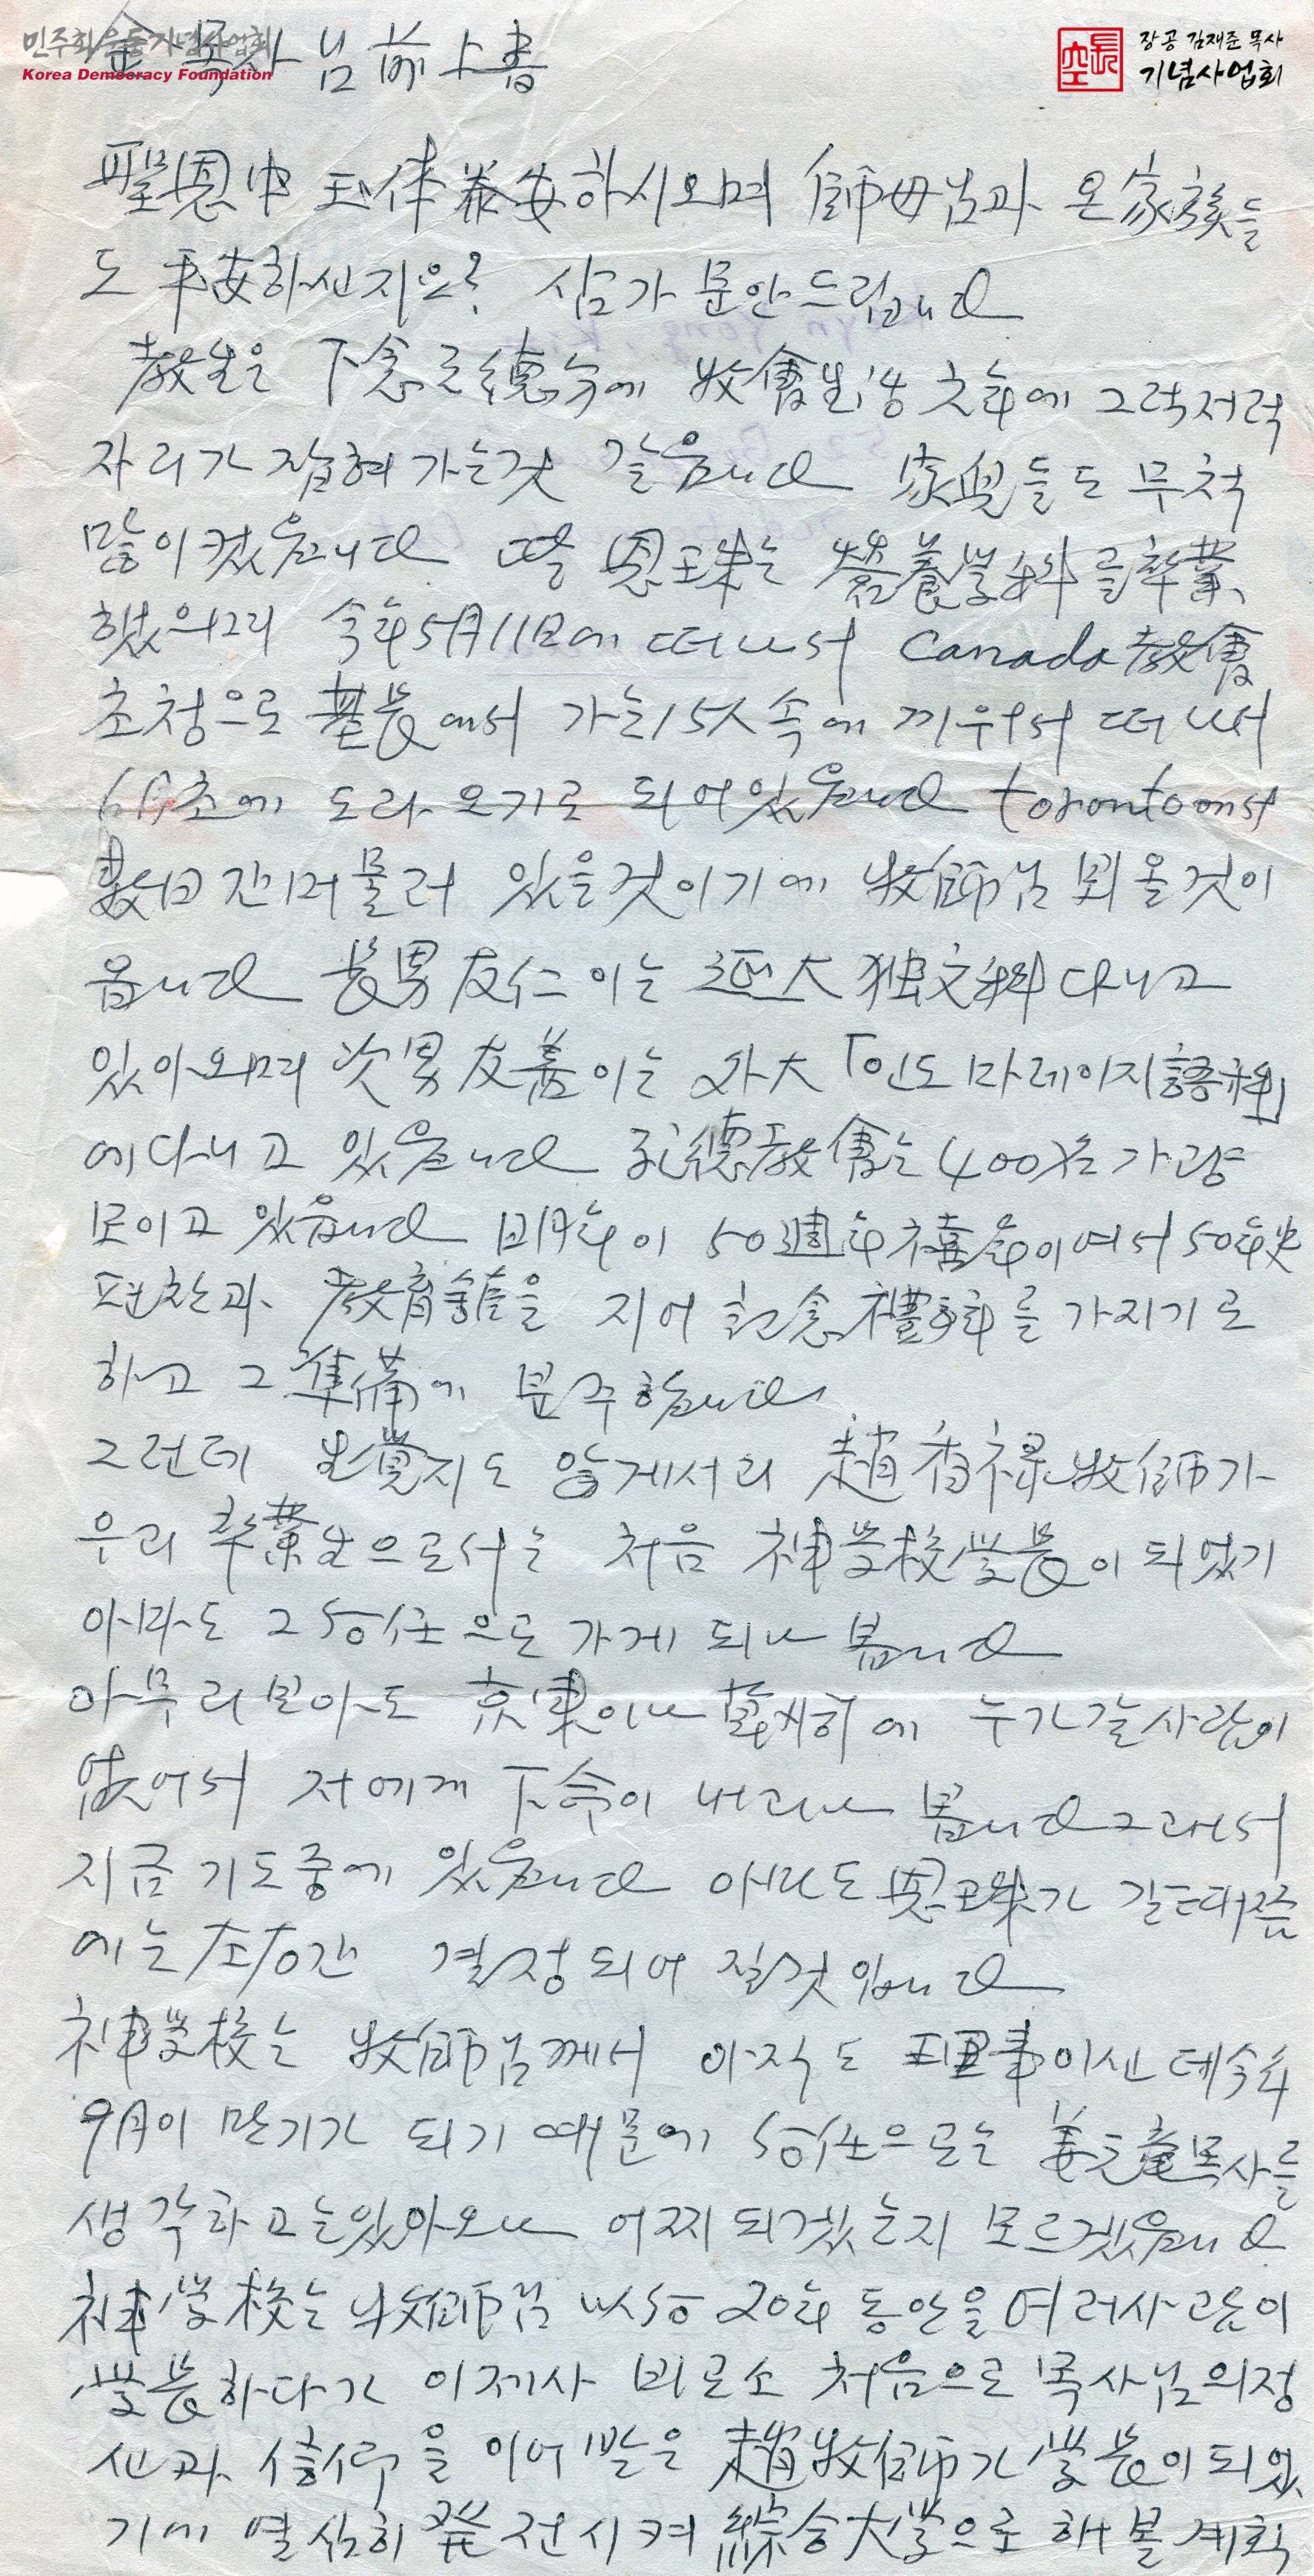 민주화운동기념사업회
Korea Democracy Foundation
장공 김재준 목사
기념사업회
金 목사님 前上書
聖恩中 玉体泰安하시오며 師母님과 온 家族들
도 平安하신지요? 삼가 문안드립니다
敎生은 下念之德分에 牧會生活 六年에 그럭저럭
자리가 잡혀가는것 같읍니다 家兒들도 무척
많이 컸읍니다 딸 恩珠는 營養学科를 卒業
했으며 今年 5月 11日에 떠나서 Canada 敎會
초청으로 基長에서 가는 15人 속에 끼워서 떠나서
6月초에 도라오기로 되어있읍니다 toronto에서
數日간 머물러 있을것이기에 牧師님 뵈올것이
옵니다 長男 友仁이는 延大 独文科 다니고
있아오며 次男 友善이는 外大 「인도 마레이지語科」
에 다니고 있읍니다 敎會는 400名 가량
모이고 있읍니다 明年이 50週年 禧年이여서 50年史
편찬과 敎育舘을 지어 記念禮拜를 가지기로
하고 그 準備에 분주합니다
그런데 生覚지도 않게서리 趙香祿 牧師가
우리 卒業生으로서는 처음 神学校 学長이 되었기
아마도 그 後任으로 가게 되나 봅니다
아무리 보아도 京東이나 에 누가 갈 사람이
없어서 저에게 下命이 내리나 봅니다 그래서
지금 기도중에 있읍니다 아마도 恩珠가 갈 때쯤
에는 左右간 결정되어 질것입니다
神学校는 牧師님께서 아직도 理事이신데 今年
9月이 만기가 되기 때문에 後任으로는 姜元龍 목사를
생각하고는 있아오나 어찌 되겠는지 모르겠읍니다
神学校는 牧師님 以後 20年 동안을 여러사람이
学長하다가 이제사 비로소 처음으로 목사님의 정
신과 信仰을 이어 받은 趙牧師가 学長이 되었
기에 열심히 発전시켜 綜合大学으로 해 볼 계획